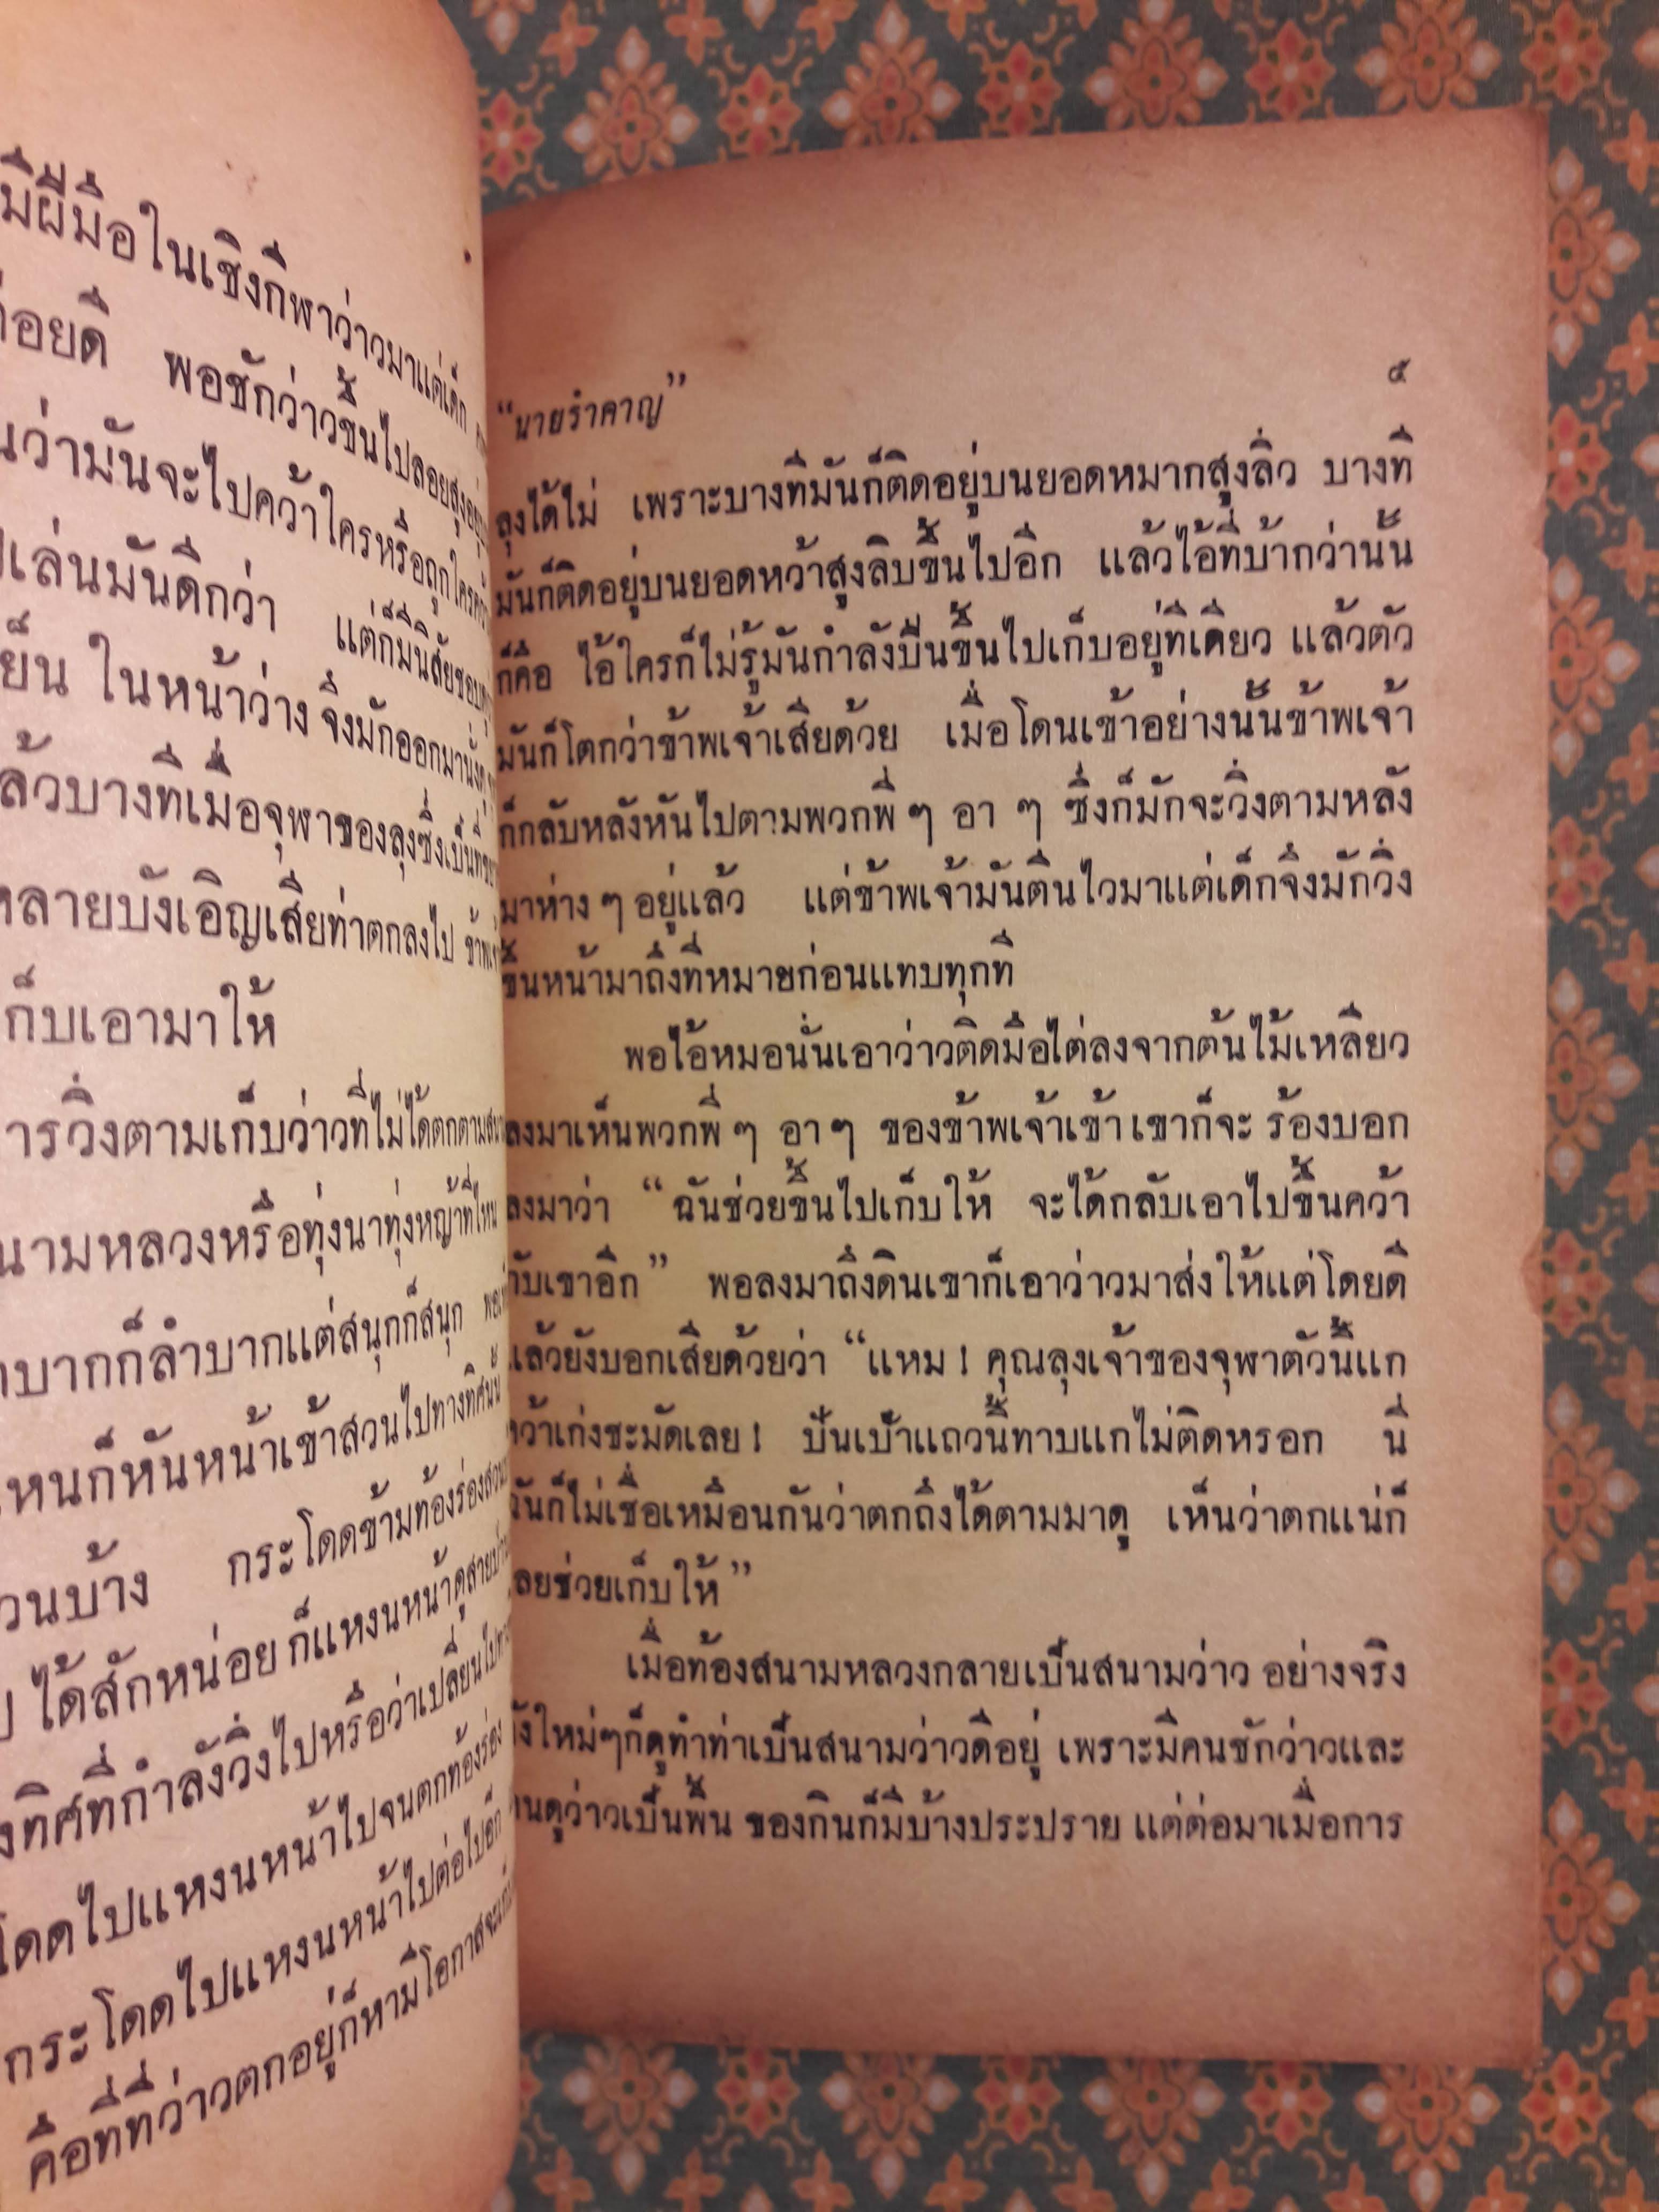 มีฝีมือในเชิงกีฬาว่าวมาแต่เด็ก
พอชักว่าวขึ้นไปลอยสูงอยู่
ว่ามันจะไปคว้าใครหรือถูกใคร
เล่นมันดีกว่า แต่ก็มีนิสัยชอบ
เย็น ในหน้าว่าง จึงมักออกมานั่ง
บางทีเมื่อจุฬาของลุงซึ่งเป็นที่
บังเอิญเสียท่าตกลงไป
เก็บเอามาให้
การวิ่งตามเก็บว่าวที่ไม่ได้ตกตาม
สนามหลวงหรือทุ่งนาทุ่งหญ้าที่ไหน
ลำบากก็ลำบากแต่สนุกก็สนุก
ไหนก็หันหน้าเข้าสวนไปทางทิศนั้น
สวนบ้าง กระโดดข้ามท้องร่อง
ได้สักหน่อย ก็แหงนหน้าดูสายป่าน
ทิศที่กำลังวิ่งไปหรือว่าเปลี่ยนไป
โดดไปแหงนหน้าไปจนตกท้องร่อง
กระโดดไปแหงนหน้าไปต่อไปอีก
คือที่ที่ว่าวตกอยู่ก็หามีโอกาสจะ
“นายรำคาญ” ๕
ลุงได้ไม่ เพราะบางทีมันก็ติดอยู่บนยอดหมากสูงลิ่ว บางที
มันก็ติดอยู่บนยอดหว้าสูงลิบขึ้นไปอีก แล้วไอ้ที่บ้ากว่านั้น
ก็คือ ไอ้ใครก็ไม่รู้มันกำลังปีนขึ้นไปเก็บอยู่ทีเดียว แล้วตัว
มันก็โตกว่าข้าพเจ้าเสียด้วย เมื่อโดนเข้าอย่างนั้นข้าพเจ้า
ก็กลับหลังหันไปตามพวกพี่ ๆ อา ๆ ซึ่งก็มักจะวิ่งตามหลัง
มาห่าง ๆ อยู่แล้ว แต่ข้าพเจ้ามันตีนไวมาแต่เด็กจึงมักวิ่ง
ขึ้นหน้ามาถึงที่หมายก่อนแทบทุกที
พอไอ้หมอนั่นเอาว่าวติดมือไต่ลงจากต้นไม้เหลียว
ลงมาเห็นพวกพี่ ๆ อา ๆ ของข้าพเจ้าเข้า เขาก็จะ ร้องบอก
ลงมาว่า “ฉันช่วยขึ้นไปเก็บให้ จะได้กลับเอาไปขึ้นคว้า
กับเขาอีก” พอลงมาถึงดินเขาก็เอาว่าวมาส่งให้แต่โดยดี
แล้วยังบอกเสียด้วยว่า “แหม ! คุณลุงเจ้าของจุฬาตัวนี้แก
คว้าเก่งชะมัดเลย ! ปักเป้าแถวนี้ทาบแกไม่ติดหรอก นี่
ฉันก็ไม่เชื่อเหมือนกันว่าตกถึงได้ตามมาดู เห็นว่าตกแน่ก็
เลยช่วยเก็บให้”
เมื่อท้องสนามหลวงกลายเป็นสนามว่าว อย่างจริง
จังใหม่ๆก็ดูทำท่าเป็นสนามว่าวดีอยู่ เพราะมีคนชักว่าวและ
คนดูว่าวเป็นพื้น ของกินก็มีบ้างประปราย แต่ต่อมาเมื่อการ